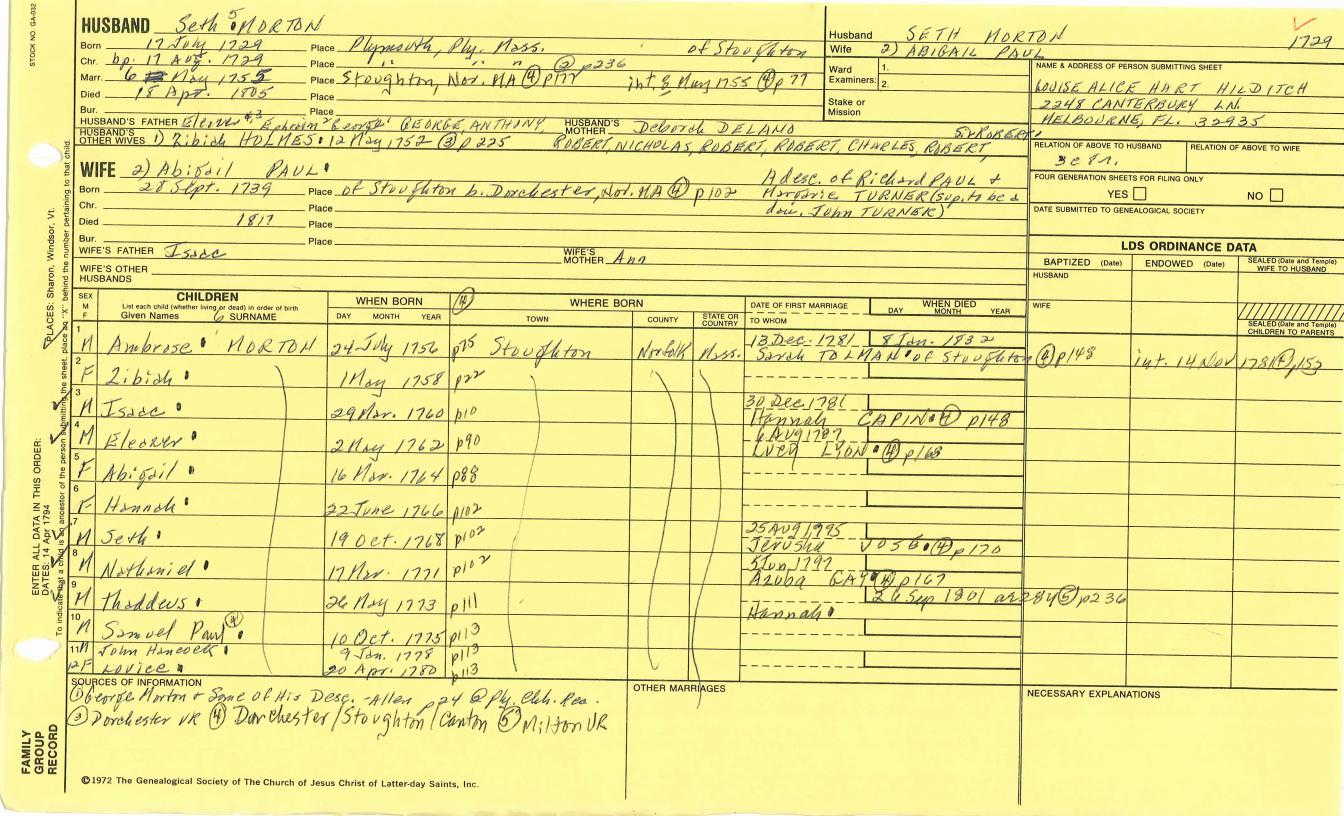 STOCK NO. GA-032
HUSBAND Seth 5 MORTON
Born 17 July 1729 Place Plymouth, Ply. Mass. of Stoughton
Chr. bp. 17 Aug. 1729 Place " " " ② p236
Marr. 6 May 1755 Place Stoughton, Nor. MA ④ p177 int. 8 May 1755 ④ p77
Died 18 Apr. 1805 Place
Bur. Place
HUSBAND'S FATHER Eleazer 4,3 Ephraim 2 George 1 GEORGE, ANTHONY, HUSBAND'S MOTHER Deborah DELANO
HUSBAND'S OTHER WIVES 1) Zibiah HOLMES 12 May 1752 ③ p225 ROBERT, NICHOLAS, ROBERT, ROBERT, CHARLES, ROBERT, S. ROBERT
WIFE 2) Abigail PAUL
Born 28 Sept. 1739 Place of Stoughton b. Dorchester, Nor. MA ④ p102
A desc. of Richard PAUL &
Margerie TURNER (sup. to be a
dau. John TURNER)
Chr. Place
Died 1817 Place
Bur. Place
WIFE'S FATHER Isaac WIFE'S MOTHER Ann
WIFE'S OTHER HUSBANDS
Husband SETH MORTON
1729
Wife 2) ABIGAIL PAUL
Ward Examiners: 1.
2.
Stake or Mission
NAME & ADDRESS OF PERSON SUBMITTING SHEET
LOUISE ALICE HART HILDITCH
2248 CANTERBURY LN.
MELBOURNE, FL. 32935
RELATION OF ABOVE TO HUSBAND RELATION OF ABOVE TO WIFE
FOUR GENERATION SHEETS FOR FILING ONLY
YES NO
DATE SUBMITTED TO GENEALOGICAL SOCIETY
LDS ORDINANCE DATA
BAPTIZED (Date) ENDOWED (Date) SEALED (Date and Temple) WIFE TO HUSBAND
HUSBAND
WIFE
SEALED (Date and Temple) CHILDREN TO PARENTS
SEX M F
CHILDREN
List each child (whether living or dead) in order of birth
Given Names 6 SURNAME
WHEN BORN
DAY MONTH YEAR
④
WHERE BORN
TOWN COUNTY STATE OR COUNTRY
DATE OF FIRST MARRIAGE
TO WHOM
WHEN DIED
DAY MONTH YEAR
1 M Ambrose MORTON 24 July 1756 p75 Stoughton Norfolk Mass. 13 Dec. 1781 8 Jan. 1832
Sarah TOLMAN of Stoughton ④ p148 int. 14 Nov 1781 ④ p153
2 F Zibiah 1 May 1758 p22
3 M Isaac 29 Mar. 1760 p10 30 Dec. 1781
Hannah CAPIN ④ p148
4 M Eleazer 2 May 1762 p90 6 Aug 1787
Lucy LYON ④ p168
5 F Abigail 16 Mar. 1764 p88
6 F Hannah 22 June 1766 p102
7 M Seth 19 Oct. 1768 p102 25 Aug 1795
Jerusha VOSE ④ p170
8 M Nathaniel 17 Mar. 1771 p102 5 Jun 1792
Azuba GAY ④ p167
9 M Thaddeus 26 May 1773 p111 26 Sep 1801 ae 28y ⑤ p236
Hannah
10 M Samuel Paul ④ 10 Oct. 1775 p113
11 M John Hancock 9 Jan. 1778 p113
12 F Lovice 20 Apr. 1780 p113
SOURCES OF INFORMATION
① George Morton & Some of His Desc. - Allen p24 ② Ply. Chh. Rec.
③ Dorchester VR ④ Dorchester/Stoughton/Canton ⑤ Milton VR
OTHER MARRIAGES
NECESSARY EXPLANATIONS
©1972 The Genealogical Society of The Church of Jesus Christ of Latter-day Saints, Inc.
FAMILY GROUP RECORD
ENTER ALL DATA IN THIS ORDER:
DATES: 14 Apr 1794
PLACES: Sharon, Windsor, Vt.
To indicate that a child is an ancestor of the person submitting the sheet, place an "X" behind the number pertaining to that child.